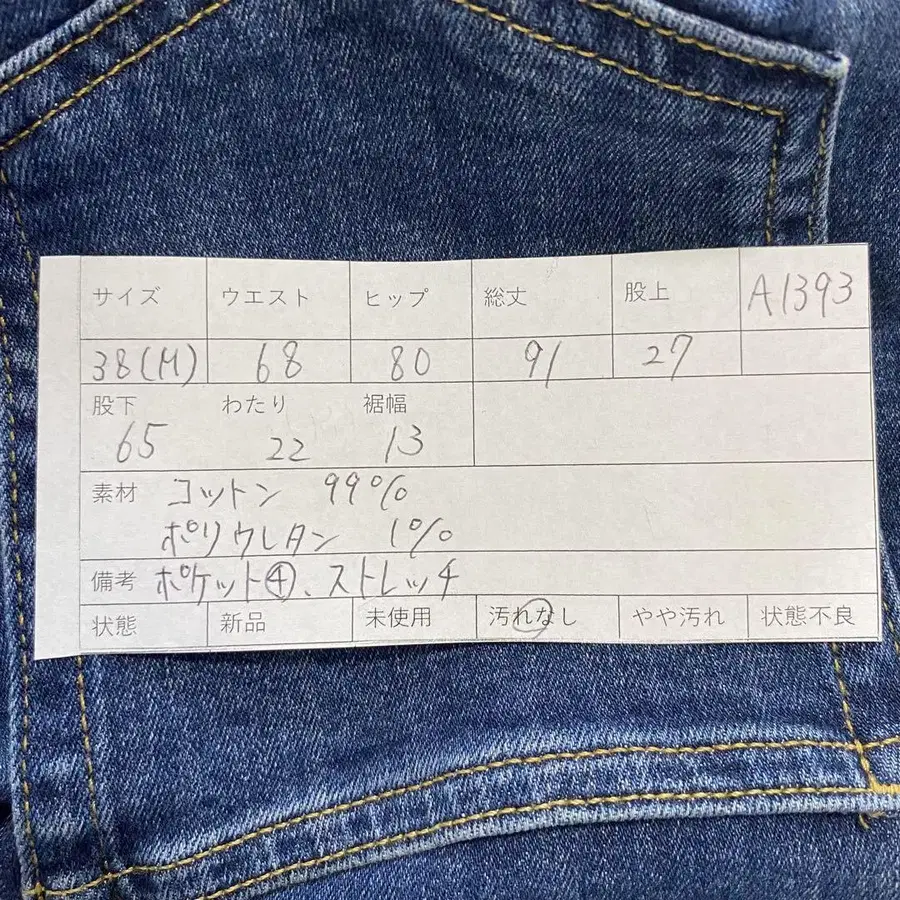 サイズ ウエスト ヒップ 総丈 股上 A1393
38(M) 68 80 91 27
股下 わたり 裾幅
65 22 13
素材 コットン 99%
ポリウレタン 1%
備考 ポケット④、ストレッチ
状態 新品 未使用 汚れなし やや汚れ 状態不良